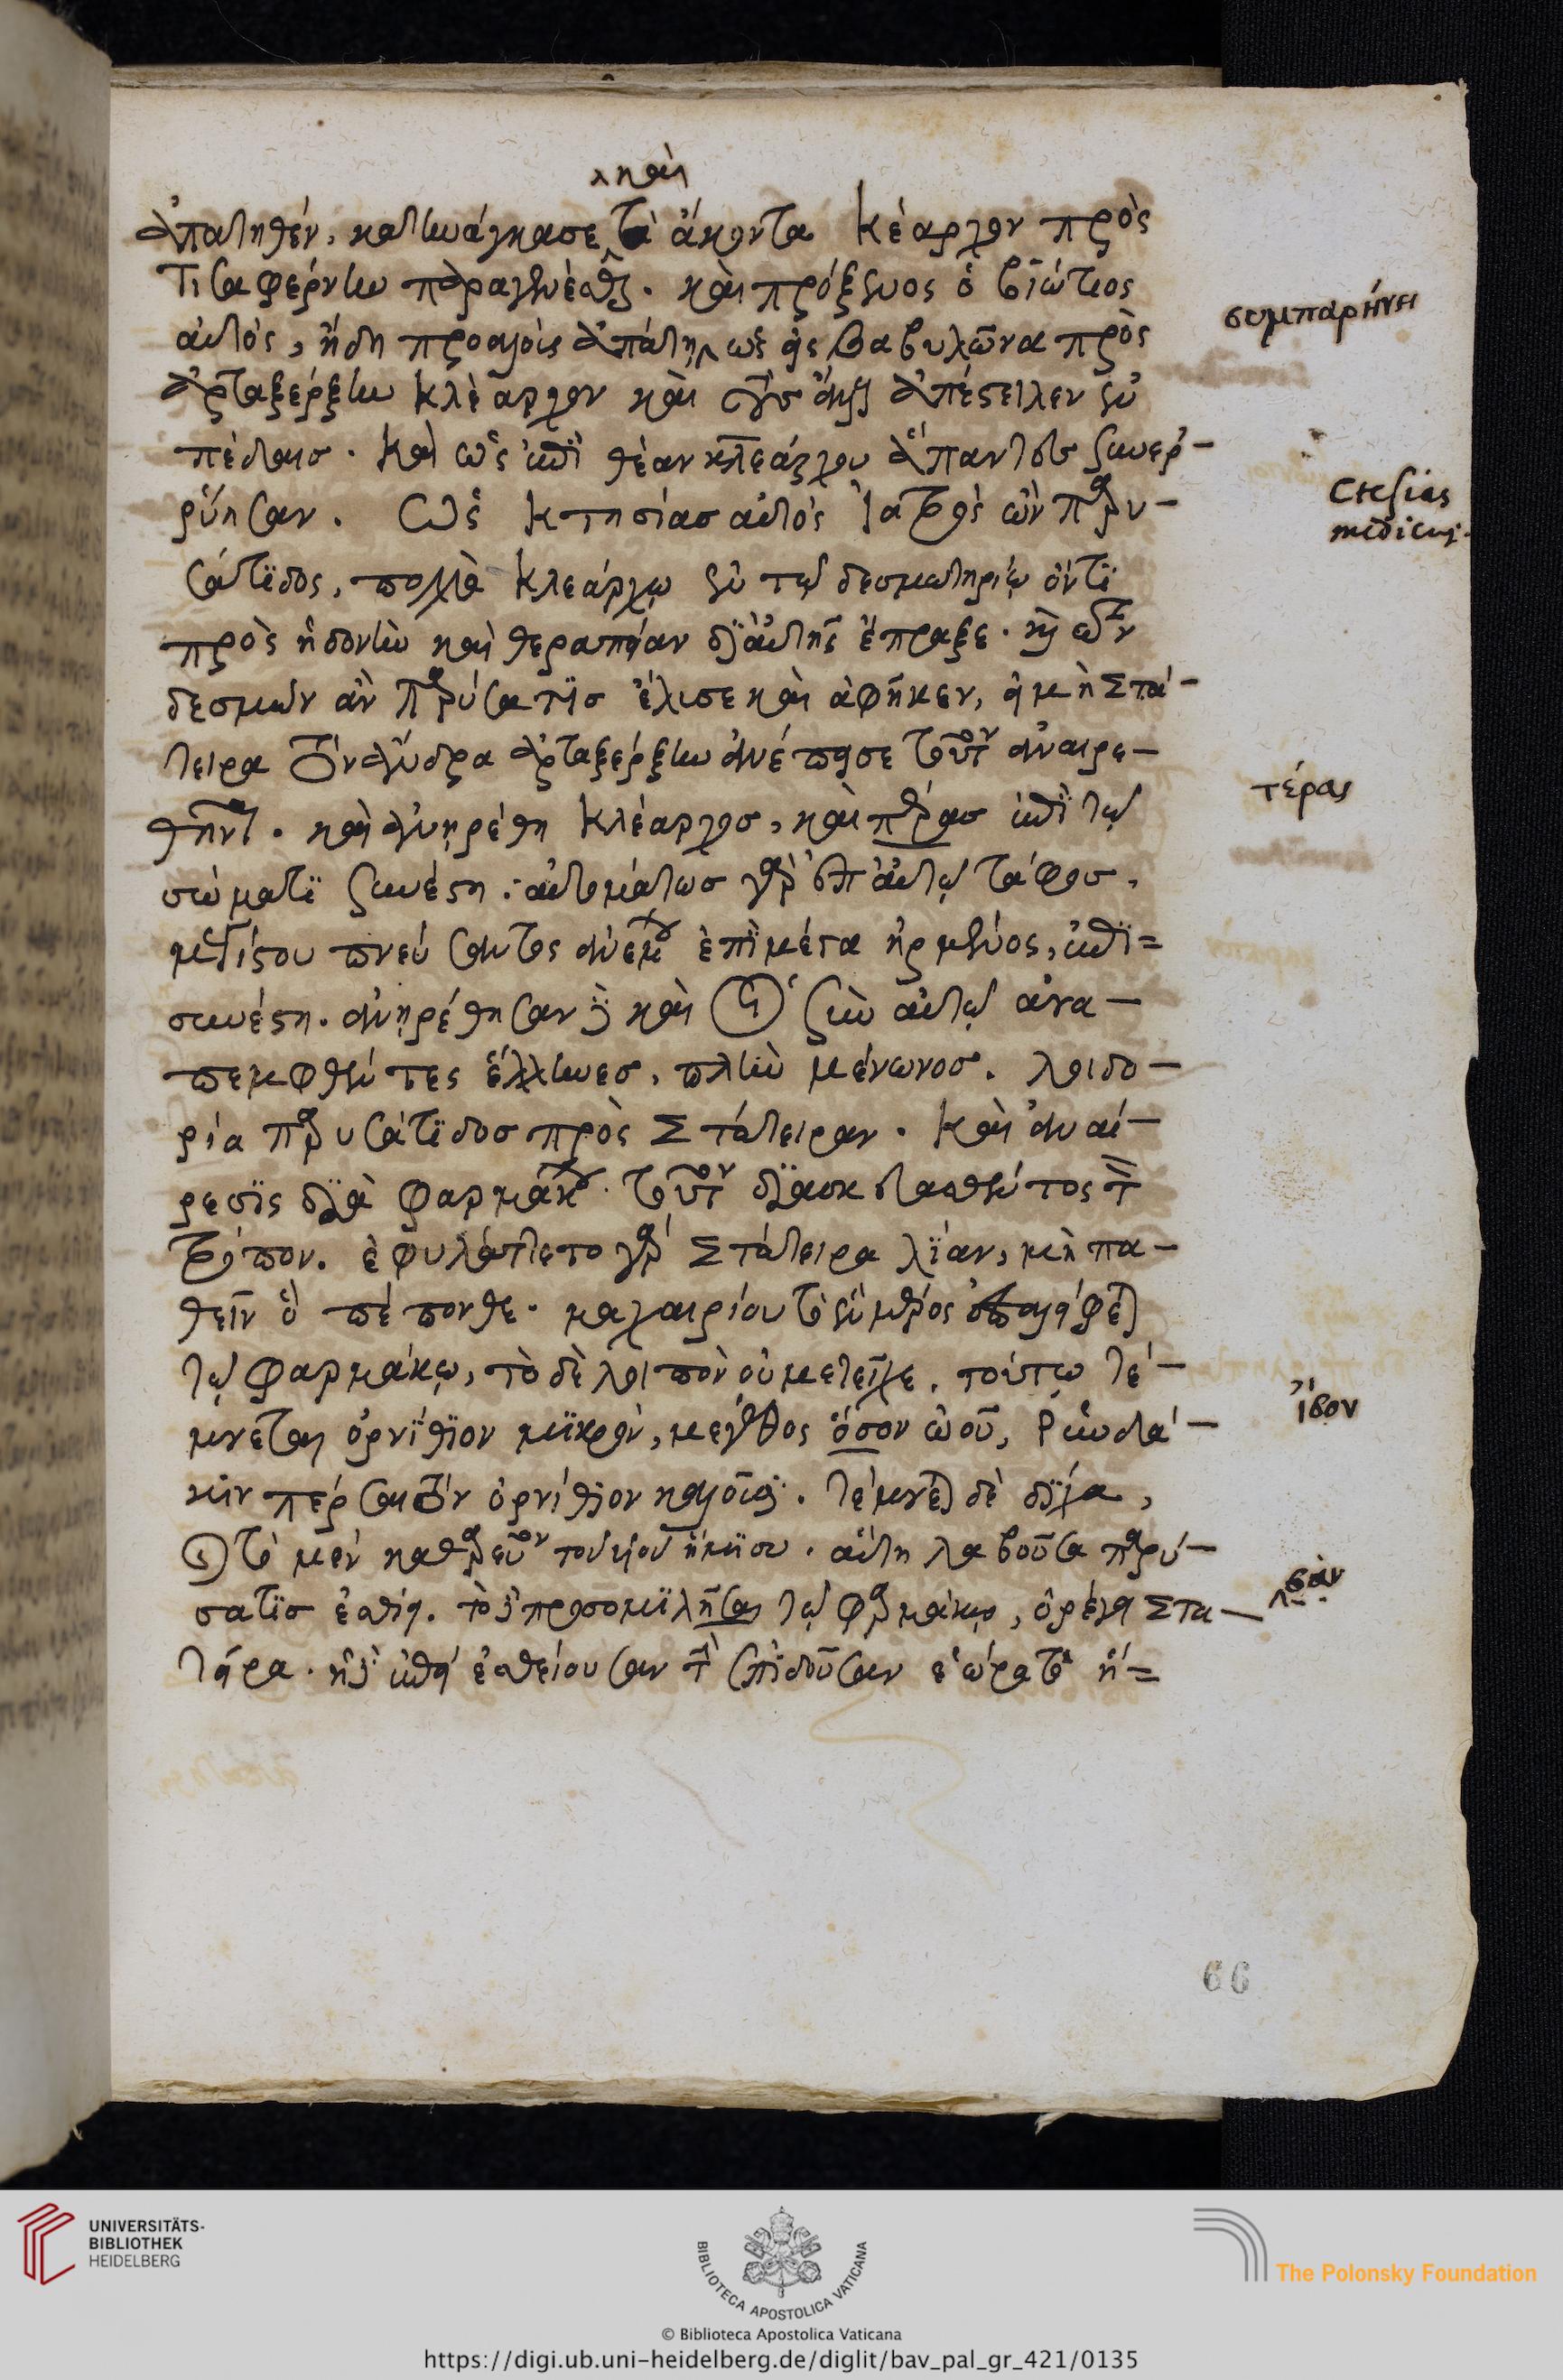 καὶ
ἀπατηθέν, κατηνάγκασε τὰ ἄκοντα Κέαρχον πρὸς
Τισαφέρνην παραγενέσθαι. καὶ πρόξενος ὁ βοιώτιος
αὐτός, ἤδη προαχθεὶς ἀπάτῃ, ὡς εἰς Βαβυλῶνα πρὸς
συμπαρήνει
ἀρταξέρξην Κλέαρχον καὶ τοὺς ἄλλους ἀπέστειλεν ἐν
πέδαισ. Καὶ ὡς ἐπὶ θέαν κλεάρχου ἅπαντες συνερ-
ρύησαν. Ὡς Κτησίασ αὐτὸς ἰατρὸς ὢν παρυ-
Ctesias
medicus.
σάτιδος, πολλὰ Κλεάρχῳ ἐν τῷ δεσμωτηρίῳ ὄντι
πρὸς ἡδονὴν καὶ θεραπείαν δι' αὐτῆς ἔπραξε. καὶ τῶν
δεσμῶν ἂν Παρύσατισ ἔλυσε καὶ ἀφῆκεν, εἰ μὴ Στά-
τειρα τὸν ἄνδρα ἀρταξέρξην ἀνέπεισε τοῦτον ἀναιρε-
θῆναι. καὶ ἀνῃρέθη Κλέαρχοσ, καὶ πέρασ ἐπὶ τῷ
τέρας
σώματι συνέστη. αὐτομάτωσ γὰρ ἐπ' αὐτῷ τάφοσ,
μεγίστου πνεύσαντος ἀνέμου ἐπὶ μέγα ἠρμένος, ἐπι=
συνέστη. ἀνῃρέθησαν δὲ καὶ οἱ σὺν αὐτῷ ἀνα-
πεμφθέντες ἕλληνεσ, πλὴν μένωνοσ. λοιδο-
ρία παρυσάτιδοσ πρὸς Στάτειραν. Καὶ ἀναί-
ρεσις διὰ φαρμάκου. τοῦτον διασκευασθέντος τὸν
τρόπον. ἐφυλάττετο γὰρ Στάτειρα λίαν, μὴ πα-
θεῖν ὃ πέπονθε. μαχαιρίου τὸ ἓν μέρος ἐπαλείφεται
τῷ φαρμάκῳ, τὸ δὲ λοιπὸν οὐ μετεῖχε. τούτῳ τέ-
μνεται ὀρνίθιον μικρόν, μέγεθος ὅσον ὠοῦ, Ῥυνδά-
ἴσον
κην πέρσαι τὸν ὀρνίθιον καλοῦσι. τέμνεται δὲ δίχα,
καὶ τὸ μὲν καθαρεῦον τοῦ ἰοῦ ἥμισυ. αὐτὴ λαβοῦσα παρύ-
σατισ ἐσθίει. τὸ δὲ προσομιλῆσαι τῷ φαρμάκῳ, ὀρέγει Στα-
σαν
τείρα. ἡ δὲ ἐπεὶ ἐσθείουσαν τὴν ἐπιδοῦσαν ἑώρα τὸ ἥ=
66
UNIVERSITÄTS-
BIBLIOTHEK
HEIDELBERG
BIBLIOTECA APOSTOLICA VATICANA
The Polonsky Foundation
© Biblioteca Apostolica Vaticana
https://digi.ub.uni-heidelberg.de/diglit/bav_pal_gr_421/0135